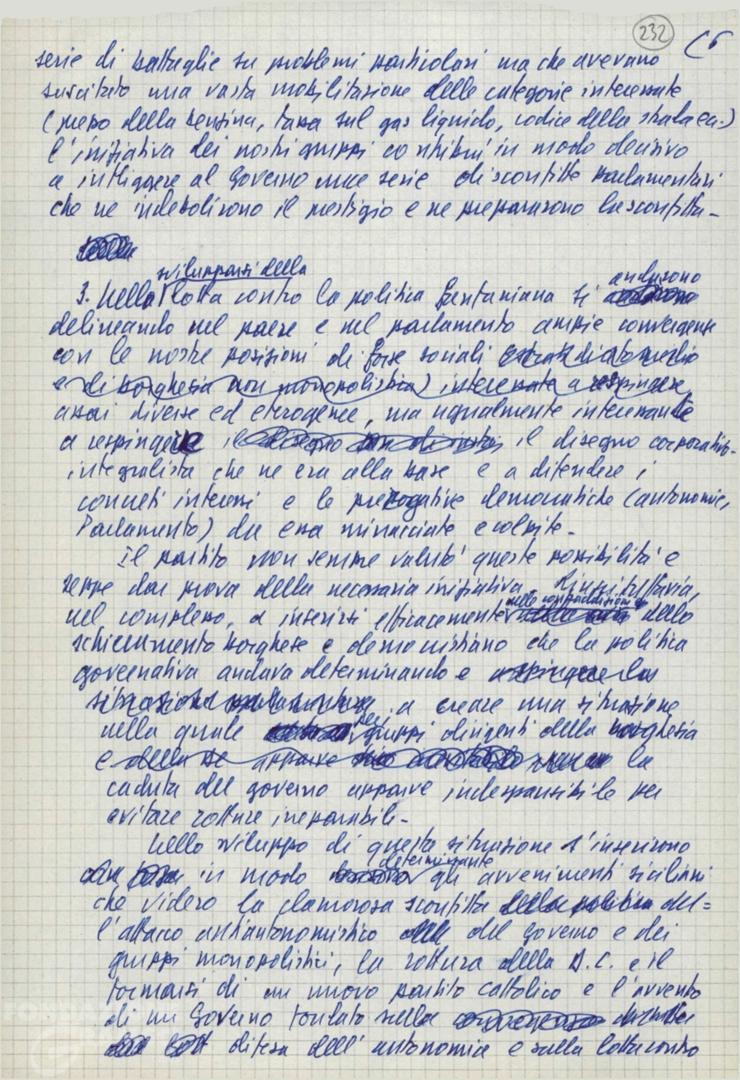 232 (6
serie di battaglie su problemi particolari ma che avevano
suscitato una vasta mobilitazione delle categorie interessate
(prezzo della benzina, tassa sul gas liquido, codice della strada ecc.)
l'iniziativa dei nostri gruppi contribuì in modo decisivo
a infliggere al Governo una serie di sconfitte parlamentari
che ne indebolirono il prestigio e ne prepararono la sconfitta -
svilupparsi della
3. Nella lotta contro la politica fanfaniana si andarono
delineando nel paese e nel parlamento ampie convergenze
con le nostre posizioni di forze sociali
e di borghesia non monopolistica) interessate a respingere
assai diverse ed eterogenee, ma ugualmente interessate
a respingere il disegno il disegno corporativo-
integralista che ne era alla base e a difendere i
concreti interessi e le prerogative democratiche (autonomie,
Parlamento) da essa minacciate e colpite -
Il partito non sempre valutò queste possibilità e
seppe dar prova della necessaria iniziativa. Riuscì tuttavia,
nel complesso, a inserirsi efficacemente nelle contraddizioni dello
schieramento borghese e democristiano che la politica
governativa andava determinando e
situazione a creare una situazione
nella quale per gruppi dirigenti della borghesia
e della apparve la
caduta del governo apparve indispensabile per
evitare rotture irreparabili -
Nello sviluppo di questa situazione s'inserirono
in modo determinante gli avvenimenti siciliani
che videro la clamorosa sconfitta della politica del=
l'attacco antiautonomistico del governo e dei
gruppi monopolistici, la rottura della D.C. e il
formarsi di un nuovo partito cattolico e l'avvento
di un Governo fondato sulla
difesa dell'autonomia e sulla lotta contro